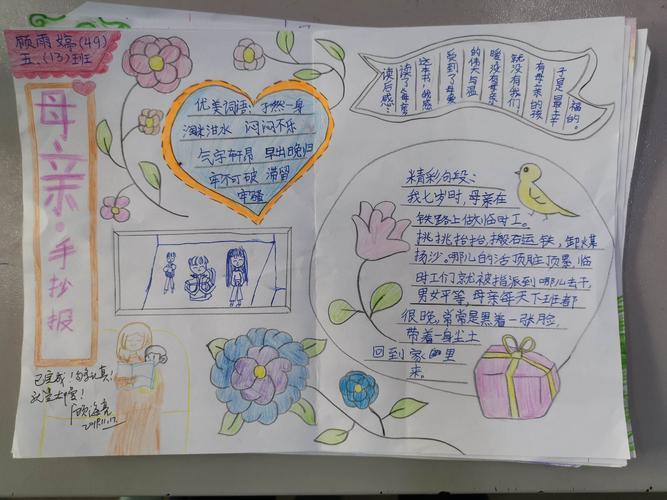 顾雨婷(49)
五.(13)班
母亲·手抄报
优美词语：孑然一身
淘米泔水 闷闷不乐
气宇轩昂 早出晚归
牢不可破 滞留
牢骚
读后感：
读了《母亲
这本书，我感
受到了母爱
的伟大与温
暖没有母亲
就没有我们
有母亲的孩
子是最幸
福的。
精彩句段：
我七岁时，母亲在
铁路上做临时工。
挑挑抬抬，搬石运铁，卸煤
扬沙。哪儿的活顶脏顶累，临
时工们就被指派到哪儿去干，
男女平等，母亲每天下班都
很晚，常常是黑着一张脸，
带着一身尘土
回到家里
来。
已完成！
2019.11.17